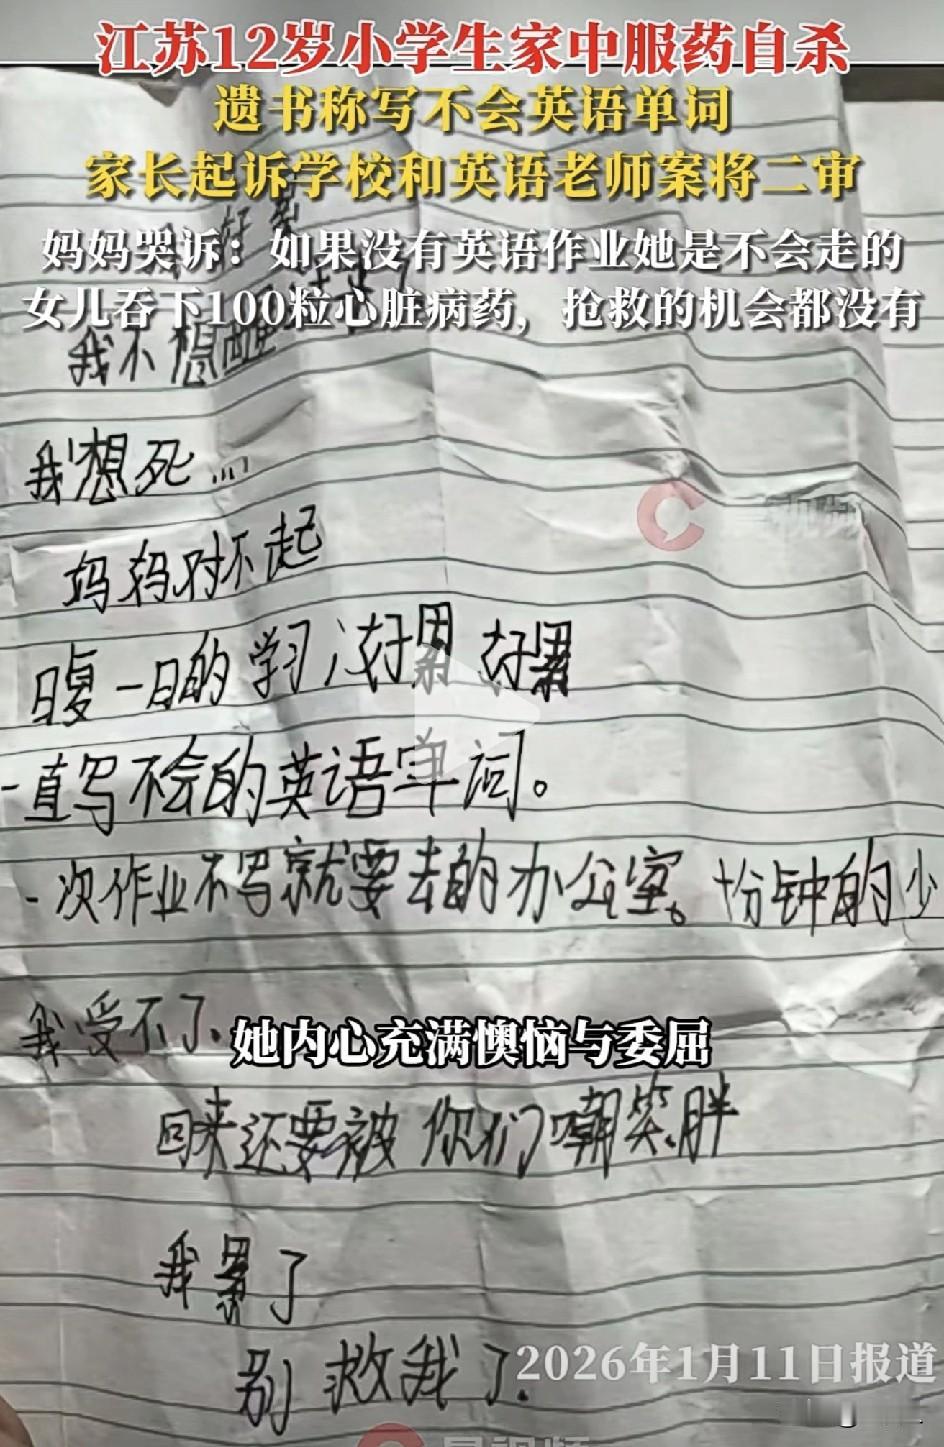 江苏12岁小学生家中服药自杀
遗书称写不会英语单词
家长起诉学校和英语老师案将二审
妈妈哭诉：如果没有英语作业她是不会走的
女儿吞下100粒心脏病药，抢救的机会都没有
我不想
我想死...
妈妈对不起
日复一日的学习，好累 好累
一直写不会的英语单词。
一次作业不写就要去的办公室。十分钟的少
我受不了.
她内心充满懊恼与委屈
回来还要被你们嘲笑.胖
我累了
别救我了.
2026年1月11日报道